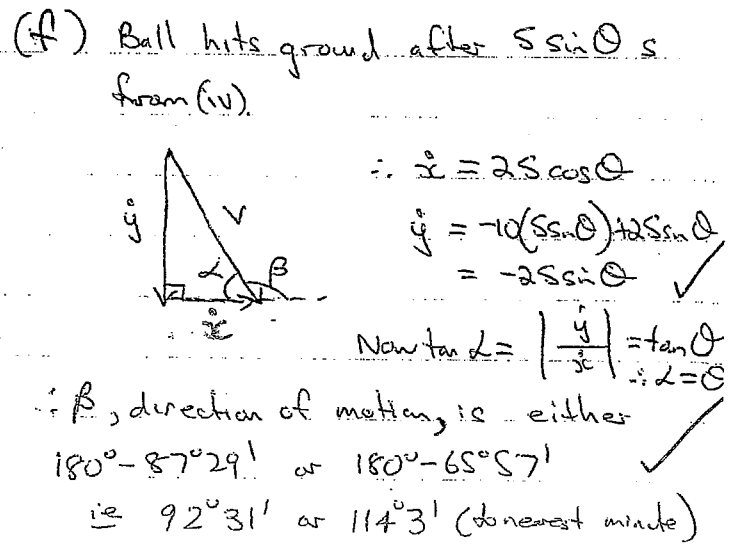 (f) Ball hits ground after 5 sin θ s
from (iv).
∴ ẋ = 25 cos θ
ẏ = -10(5 sin θ) + 25 sin θ
= -25 sin θ ✓
ẏ V α β ẋ
Now tan α = | ẏ / ẋ | = tan θ
∴ α = θ
∴ β, direction of motion, is either
180° - 87°29' or 180° - 65°57' ✓
ie 92°31' or 114°3' (to nearest minute)